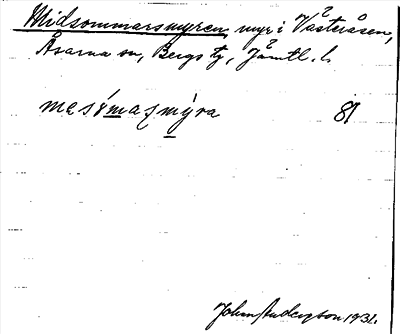 Midsommarsmyren, myr i Västeråsen,
Åsarna sn, Bergs tg, Jämtl. l.
81
John Anderzson 1931.